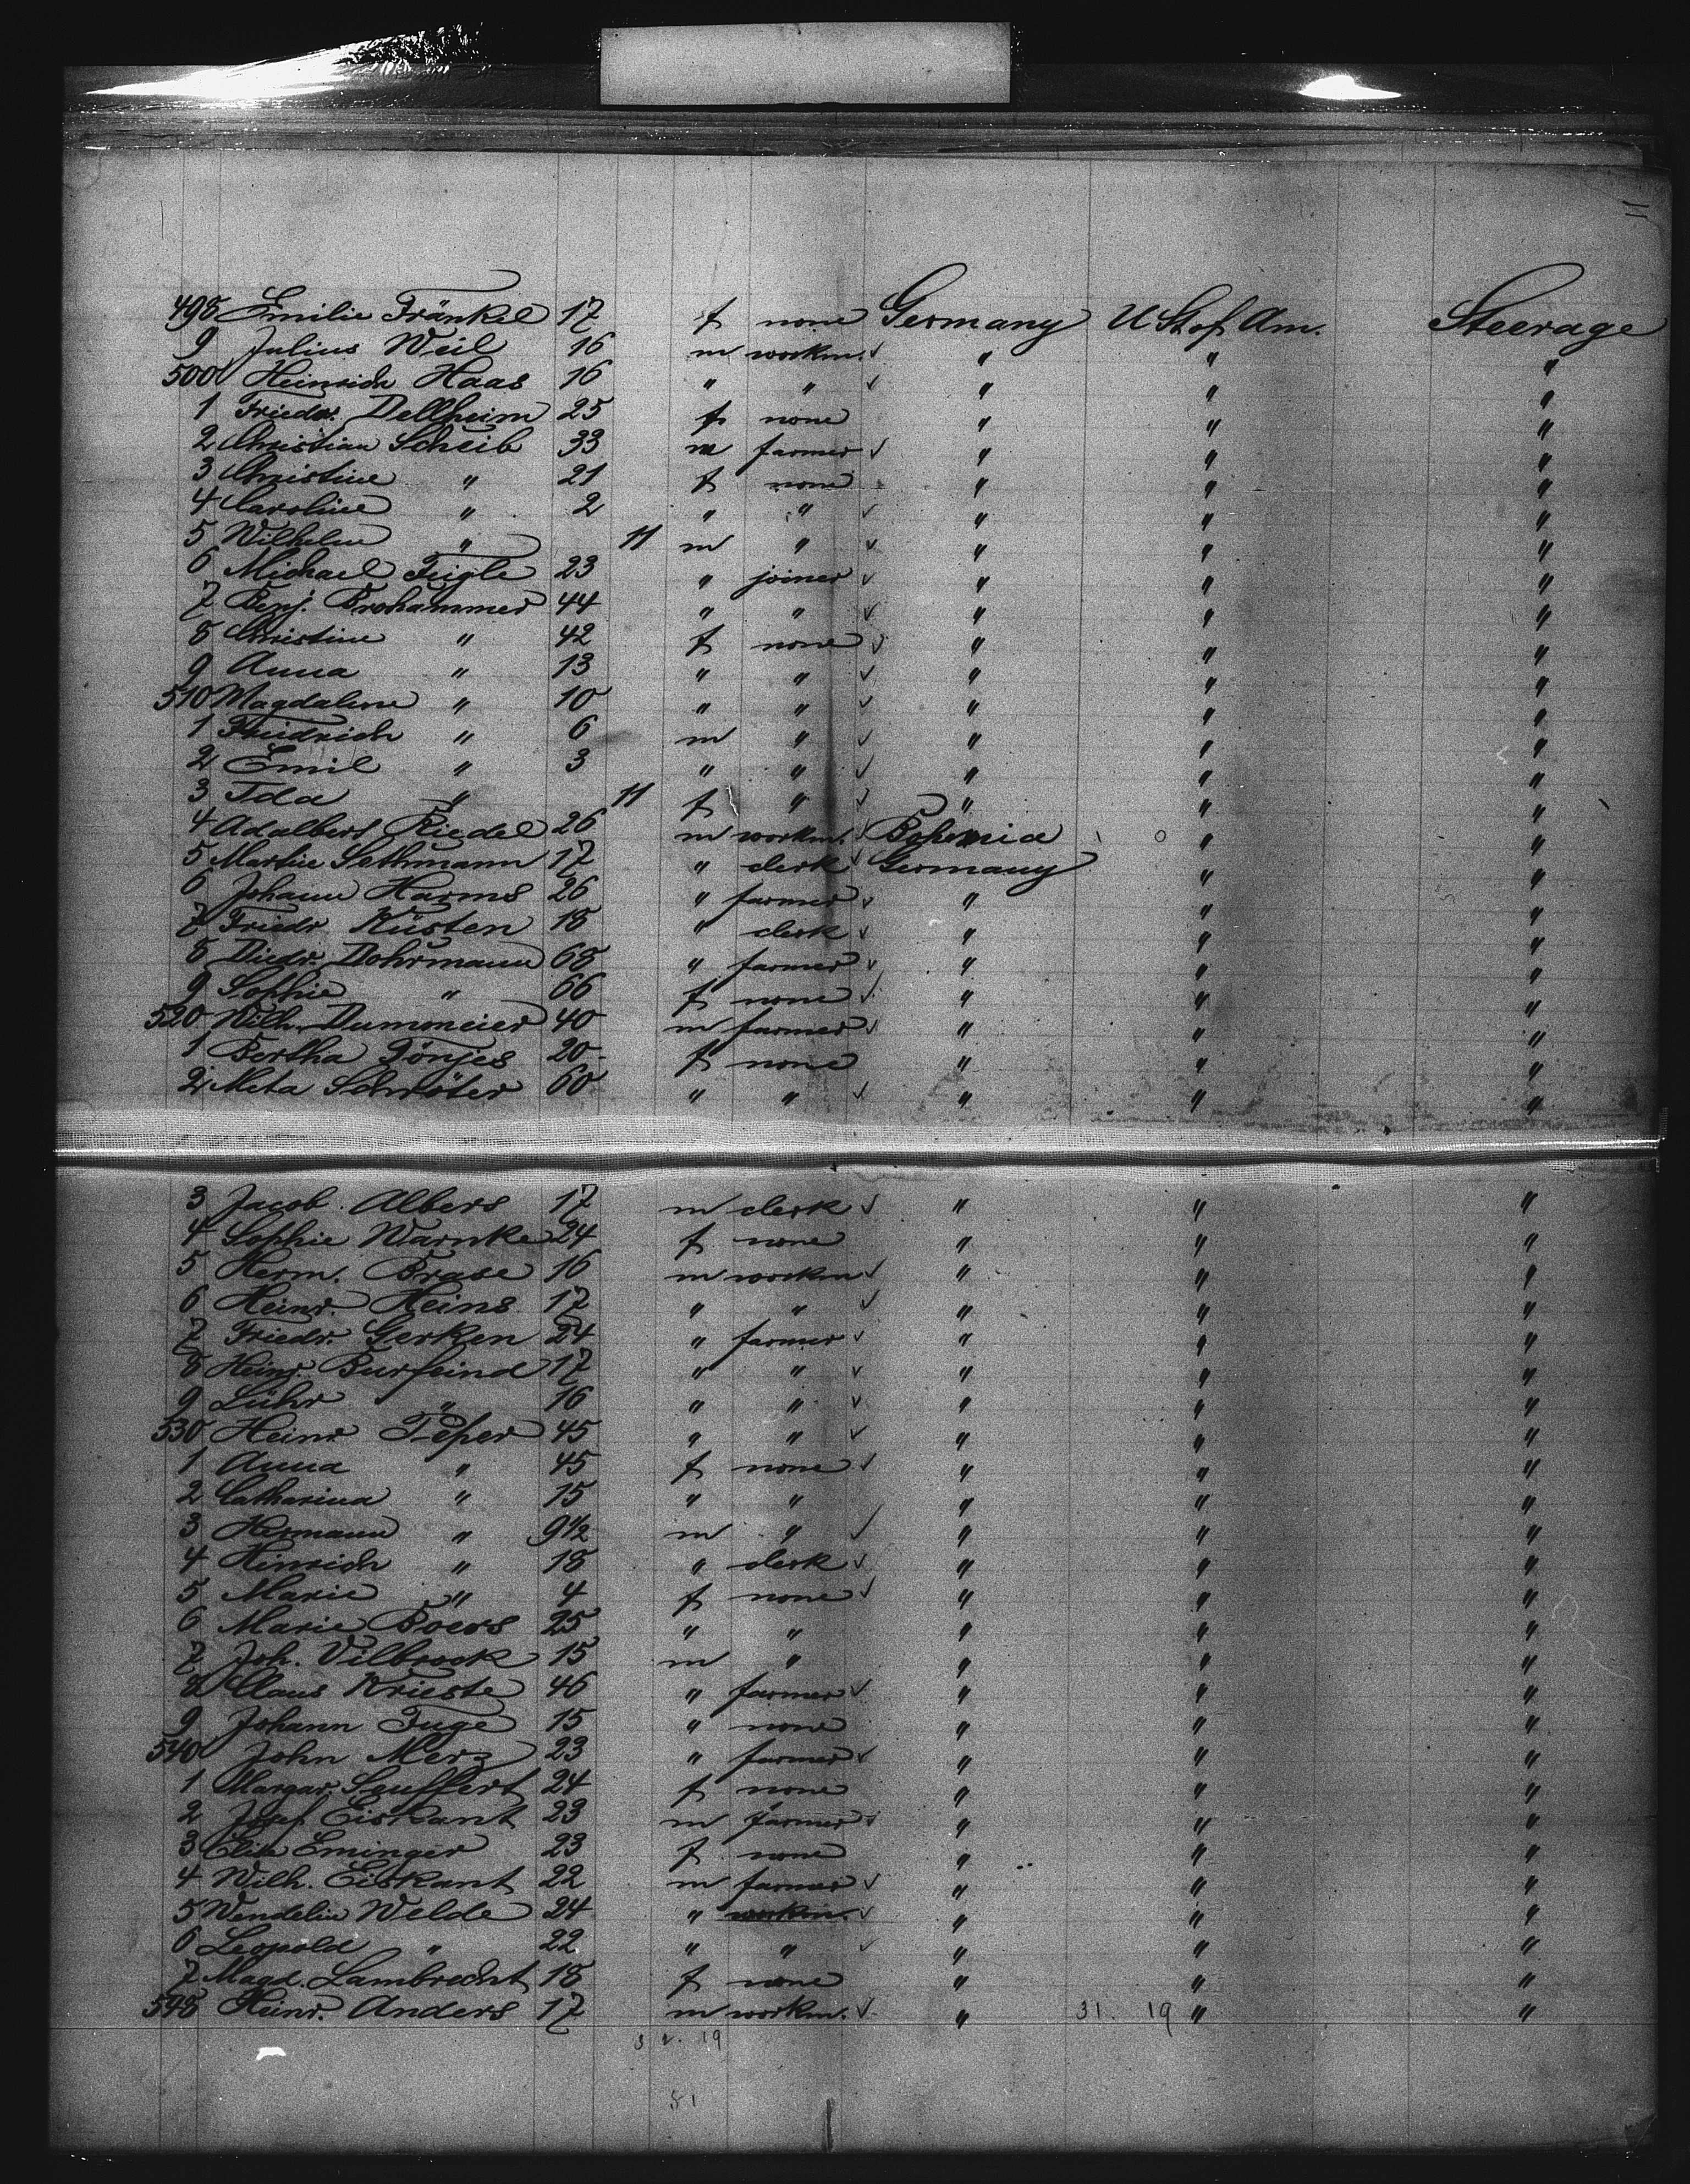 498 Emilie Fränkel 17 f none Germany U St of Am. Steerage
9 Julius Weil 16 m workm. " " "
500 Heinrich Haas 16 " " " " "
1 Friedr. Dellheim 25 f none " " "
2 Christian Scheib 33 m farmer " " "
3 Christine " 21 f none " " "
4 Caroline " 2 " " " " "
5 Wilhelm " 11 m " " " "
6 Michael Feigle 23 " joiner " " "
7 Benj. Brohammer 44 " " " " "
8 Christine " 42 f none " " "
9 Anna " 13 " " " " "
510 Magdalene " 10 " " " " "
1 Friedrich " 6 m " " " "
2 Emil " 3 " " " " "
3 Ida " 11 f " " " "
4 Adalbert Riedel 26 m workm. Bohemia " "
5 Martin Lethmann 17 " clerk Germany " "
6 Johann Harms 26 " farmer " " "
7 Friedr Küsten 18 " clerk " " "
8 Diedr. Dohrmann 68 " farmer " " "
9 Sophie " 66 f none " " "
520 Wilh. Dummeier 40 m farmer " " "
1 Bertha Tönjes 20 f none " " "
2 Meta Schröter 60 " " " " "
3 Jacob Albers 17 m clerk " " "
4 Sophie Warnke 24 f none " " "
5 Herm. Brase 16 m workm " " "
6 Heinr. Heins 17 " " " " "
7 Friedr. Gerken 24 " farmer " " "
8 Heinr. Burfeind 17 " " " " "
9 Lühr " 16 " " " " "
530 Heinr. Peper 45 " " " " "
1 Anna " 45 f none " " "
2 Catharina " 15 " " " " "
3 Hermann " 9½ m " " " "
4 Hinrich " 18 " clerk " " "
5 Marie " 4 f none " " "
6 Marie Boers 25 " " " " "
7 Joh. Vilbrock 15 m " " " "
8 Claus Krieste 46 " farmer " " "
9 Johann Fuge 15 " none " " "
540 John Merz 23 " farmer " " "
1 Margar. Seuffert 24 f none " " "
2 Josef Eiskant 23 m farmer " " "
3 Elise Eminger 23 f none " " "
4 Wilh. Eiskant 22 m farmer " " "
5 Wendelin Welde 24 " workm. " " "
6 Leopold " 22 " " " " "
7 Magd. Lambrecht 18 f none " " "
548 Heinr. Anders 17 m workm. " 31. 19 " "